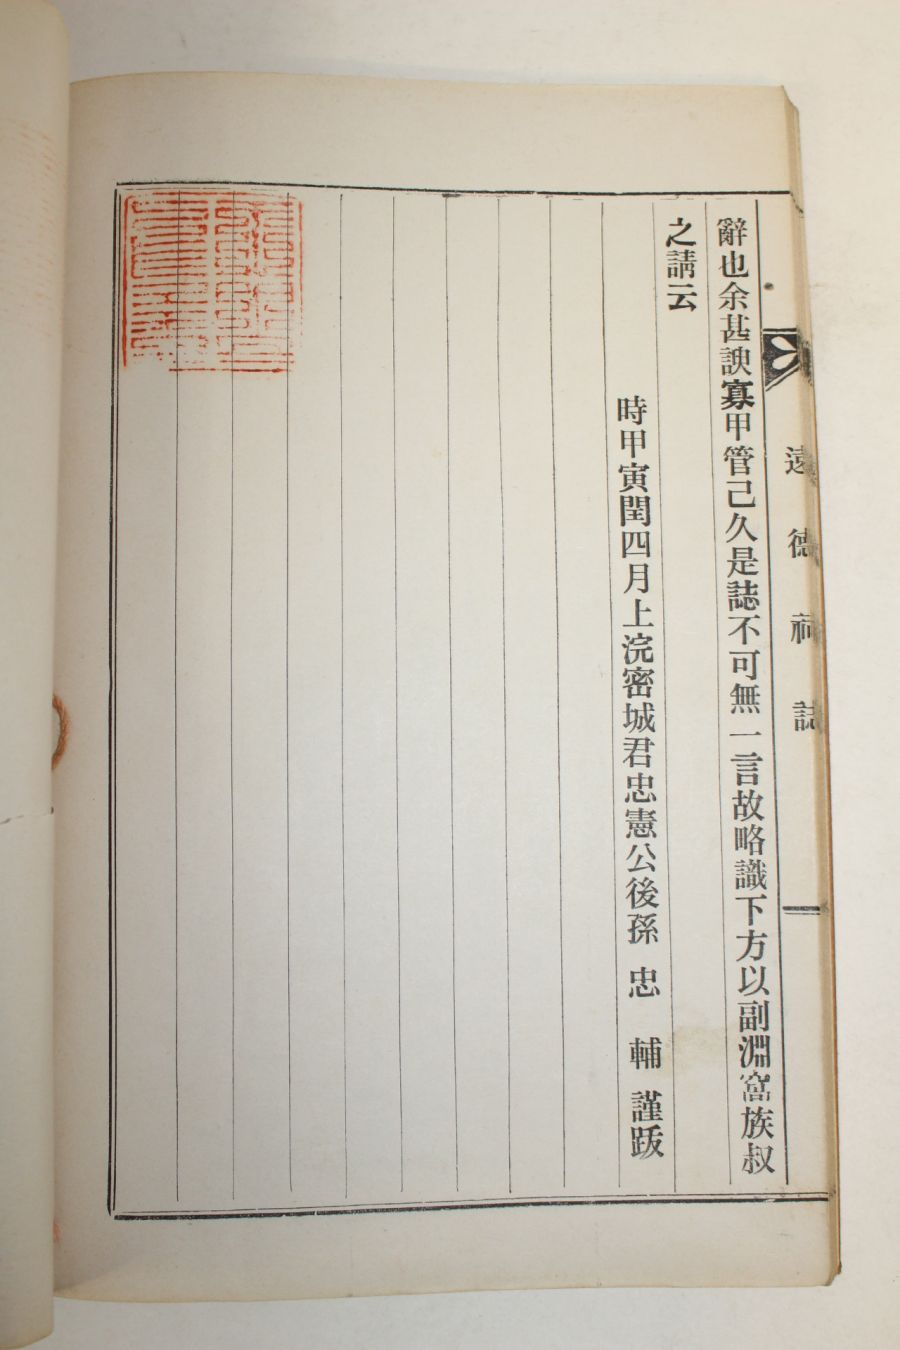 遠德祠誌
辭也余甚諛寡甲管己久是誌不可無一言故略識下方以副淵窩族叔
之請云
時甲寅閏四月上浣密城君忠憲公後孫 忠 輔 謹跋